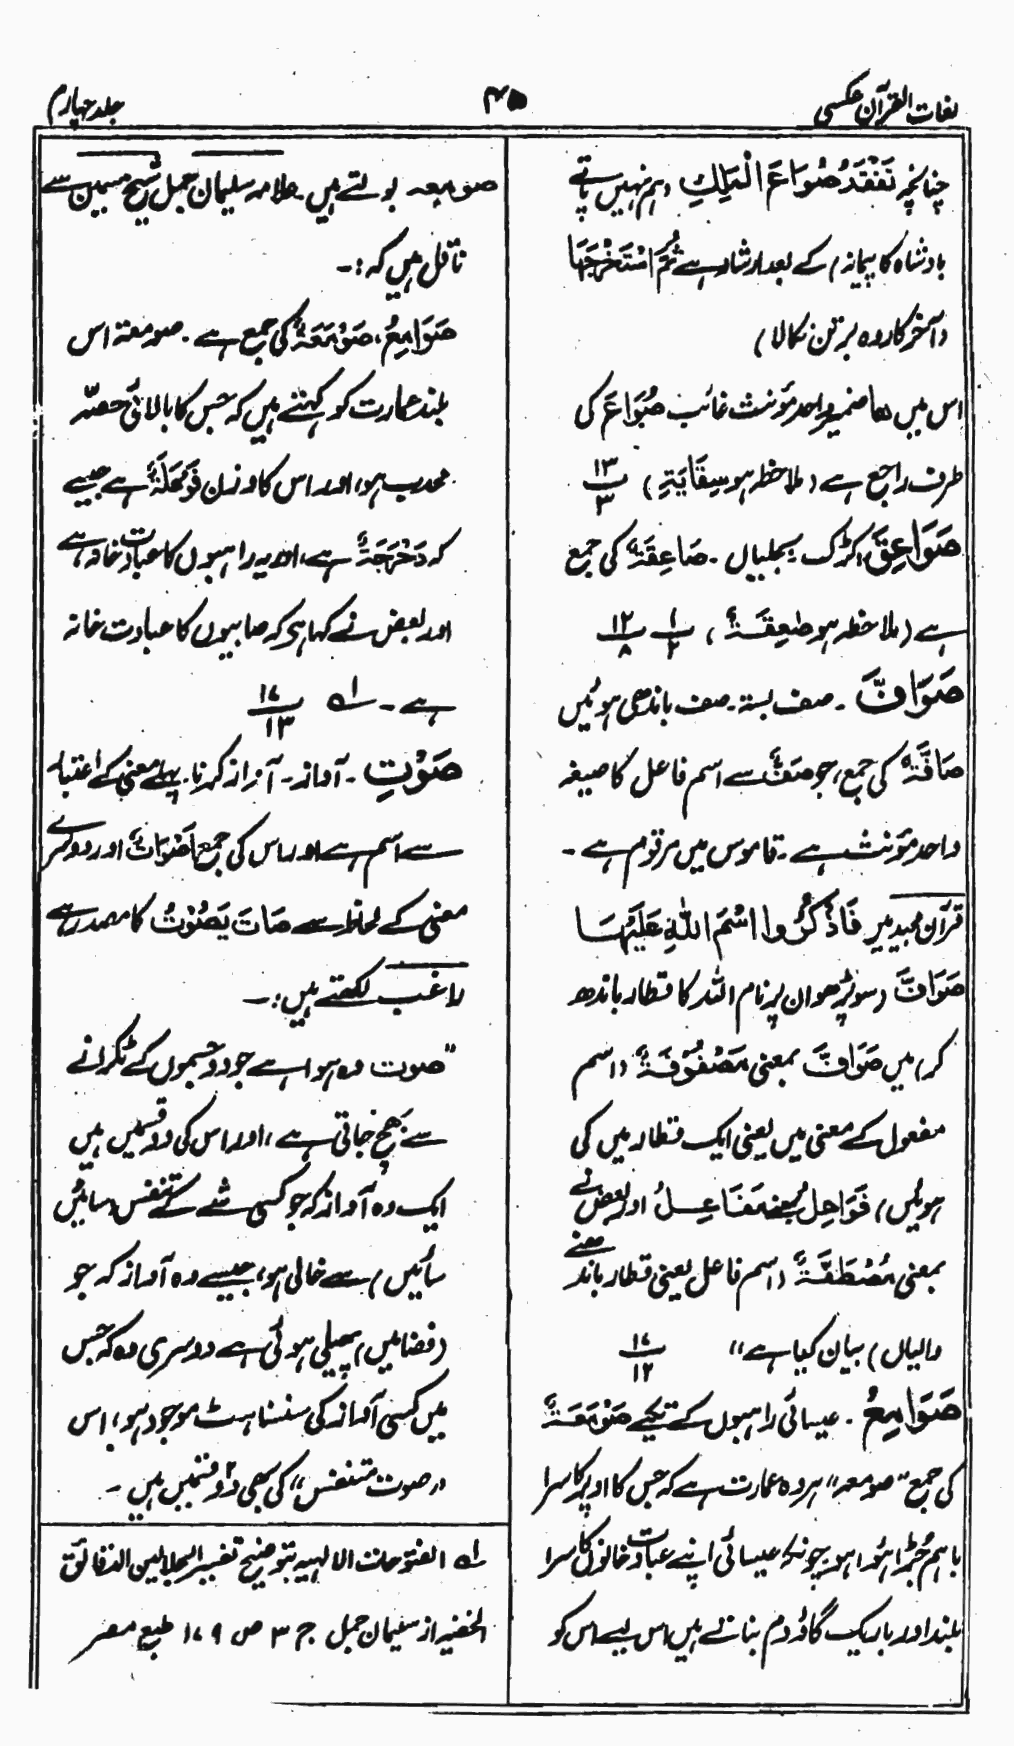 لغات القرآن عکسی
۴۵
جلد چہارم
چنانچہ نَفْقِدُ صُوَاعَ الْمَلِكِ (ہم نہیں پاتے
بادشاہ کا پیمانہ) کے بعد ارشاد ہے ثُمَّ اسْتَخْرَجَهَا
(آخر کار وہ برتن نکالا)
اس میں ھا ضمیر واحد مؤنث غائب صُوَاعَ کی
طرف راجع ہے (ملاحظہ ہو سِقَايَةِ) ۱۳/۳
صَوَاعِقَ، کڑک۔ بجلیاں۔ صَاعِقَةٌ کی جمع
ہے (ملاحظہ ہو صٰعِقَةٌ) ۱/۲ ۱۲/۸
صَوَافَّ۔ صف بستہ۔ صف باندھی ہوئیں
صَافَّةٌ کی جمع، جو صَفٌّ سے اسم فاعل کا صیغہ
واحد مؤنث ہے۔ قاموس میں مرقوم ہے۔
قرآن مجید میں فَاذْكُرُوا اسْمَ اللّٰهِ عَلَيْهَا
صَوَافَّ (سو پڑھو ان پر نام اللہ کا قطار باندھ
کر) میں صَوَافَّ بمعنی مَصْفُوفَةٌ (اسم
مفعول کے معنی میں یعنی ایک قطار میں کی
ہوئیں) فَوَاعِلُ بمعنے مَفَاعِلُ اور بعض نے
بمعنی مُصْطَفَّةٌ (اسم فاعل یعنی قطار باندھنے
والیاں) بیان کیا ہے" ۱۷/۱۲
صَوَامِعُ۔ عیسائی راہبوں کے تکیے صَوْمَعَةٌ
کی جمع "صومعہ" ہر وہ عمارت ہے کہ جس کا اوپر کا سرا
باہم جُڑا ہوا ہو۔ چونکہ عیسائی اپنے عبادت خانوں کا سرا
بلند اور باریک گاؤ دم بناتے ہیں اس لیے اس کو
صومعہ بولتے ہیں۔ علامہ سلیمان جمل شیخ سمین سے
ناقل ہیں کہ:۔
صَوَامِعُ، صَوْمَعَةٌ کی جمع ہے۔ صومعۃ اس
بلند عمارت کو کہتے ہیں کہ جس کا بالائی حصّہ
محدب ہو، اور اس کا وزن فَوْعَلَةٌ ہے جیسے
کہ دَحْرَجَةٌ ہے، اور یہ راہبوں کا عبادت خانہ ہے
اور بعض نے کہا ہے کہ صابیوں کا عبادت خانہ
ہے۔ لہ ۱۷/۱۳
صَوْتِ۔ آواز۔ آواز کرنا۔ پہلے معنی کے اعتبار
سے اسم ہے اور اس کی جمع اَصْوَاتٌ اور دوسرے
معنی کے لحاظ سے صَاتَ يَصُوْتُ کا مصدر ہے
راغب لکھتے ہیں:۔
"صوت وہ ہوا ہے جو دو جسموں کے ٹکرانے
سے بھچ جاتی ہے، اور اس کی دو قسمیں ہیں
ایک وہ آواز کہ جو کسی شے کے تنفس (سائیں
سائیں) سے خالی ہو، جیسے وہ آواز کہ جو
(فضا میں) پھیلی ہوئی ہے دوسری وہ کہ جس
میں کسی آواز کی سنسناہٹ موجود ہو، اس
"صوت متنفس" کی بھی دو قسمیں ہیں۔
لہ الفتوحات الالہیہ بتوضیح تفسیر الجلالین الدقائق
الخفیہ از سلیمان جمل ج ۳ ص ۱۷۹ طبع مصر